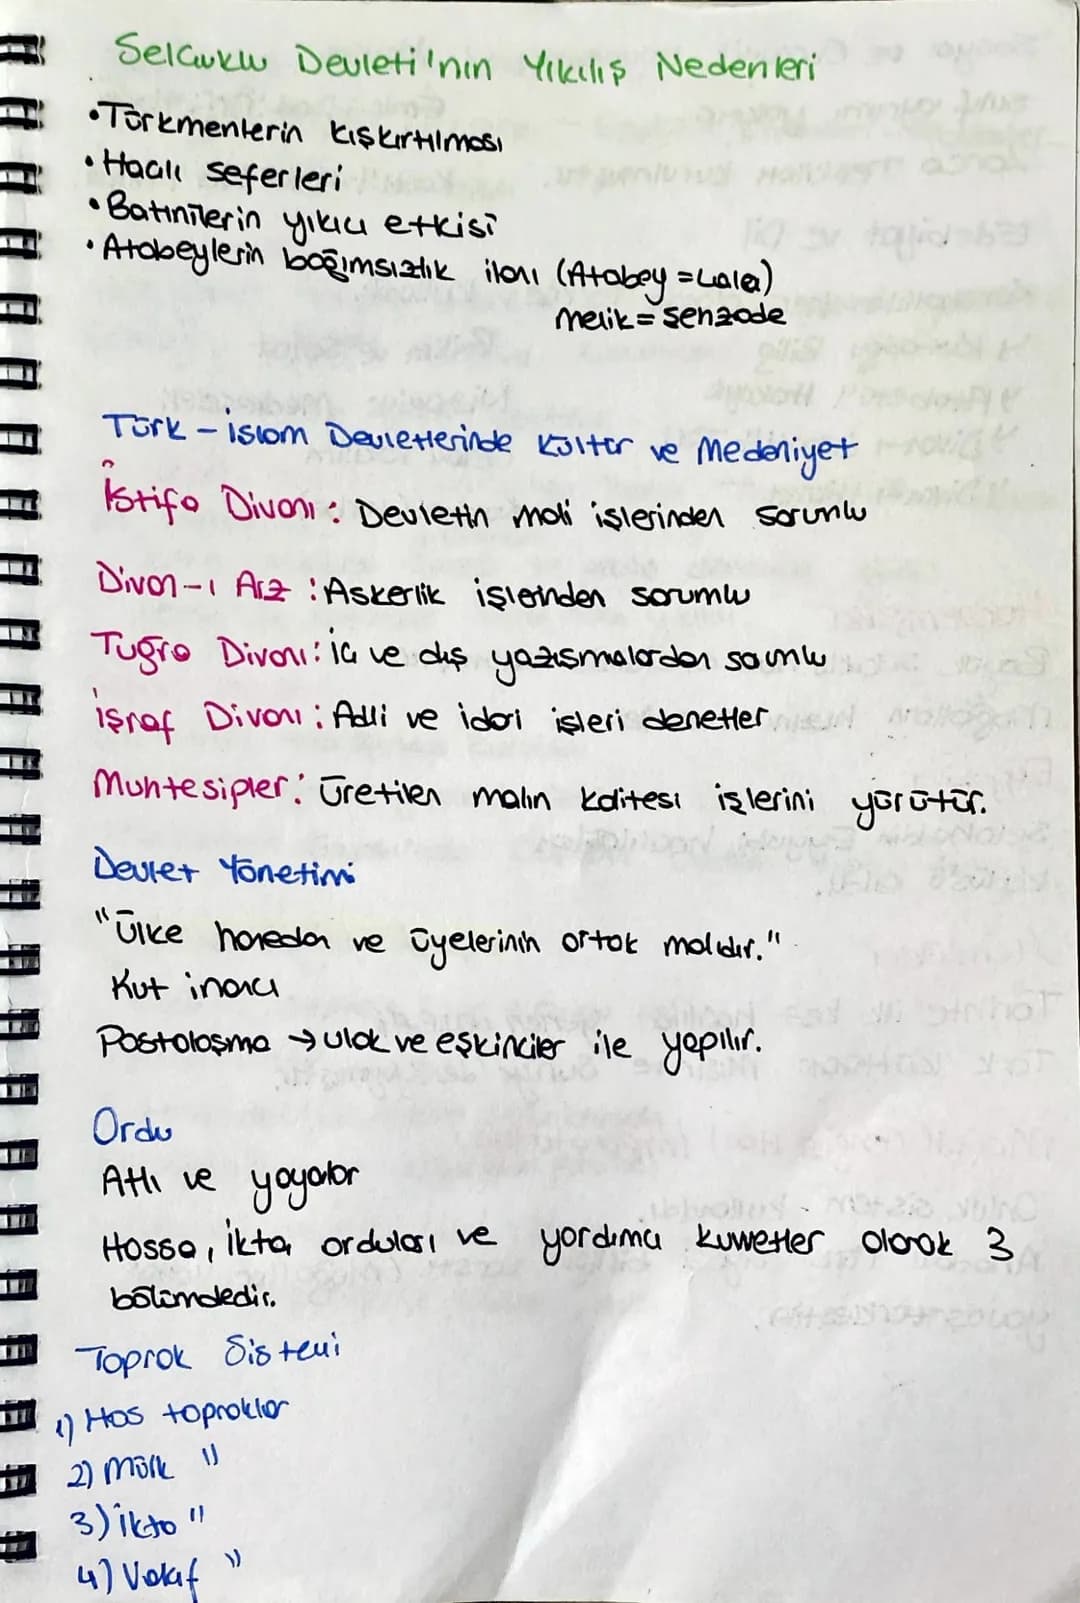 Selçuklu Devleti'nin Yıkılış Nedenleri
•Türkmenlerin kışkırtılması
•Haçlı seferleri
•Batınilerin yıkıcı etkisi
•Atabeylerin bağımsızlık ilanı (Atabey = Lala)
Melik = Şehzade
Türk - İslam Devletlerinde Kültür ve Medeniyet
İstifa Divanı : Devletin mali işlerinden sorumlu
Divan-ı Arz : Askerlik işlerinden sorumlu
Tuğra Divanı : İç ve dış yazışmalardan sorumlu
İşraf Divanı : Adli ve idari işleri denetler
Muhtesipler : Üretilen malın kalitesi işlerini yürütür.
Devlet Yönetimi
"Ülke hanedan ve üyelerinin ortak malıdır."
Kut inancı
Postalaşma → ulak ve eşkinciler ile yapılır.
Ordu
Atlı ve yayalar
Hassa, İkta orduları ve yardımcı kuvvetler olarak 3
bölümdedir.
Toprak Sistemi
1) Has topraklar
2) Mülk "
3) İkta "
4) Vakıf "